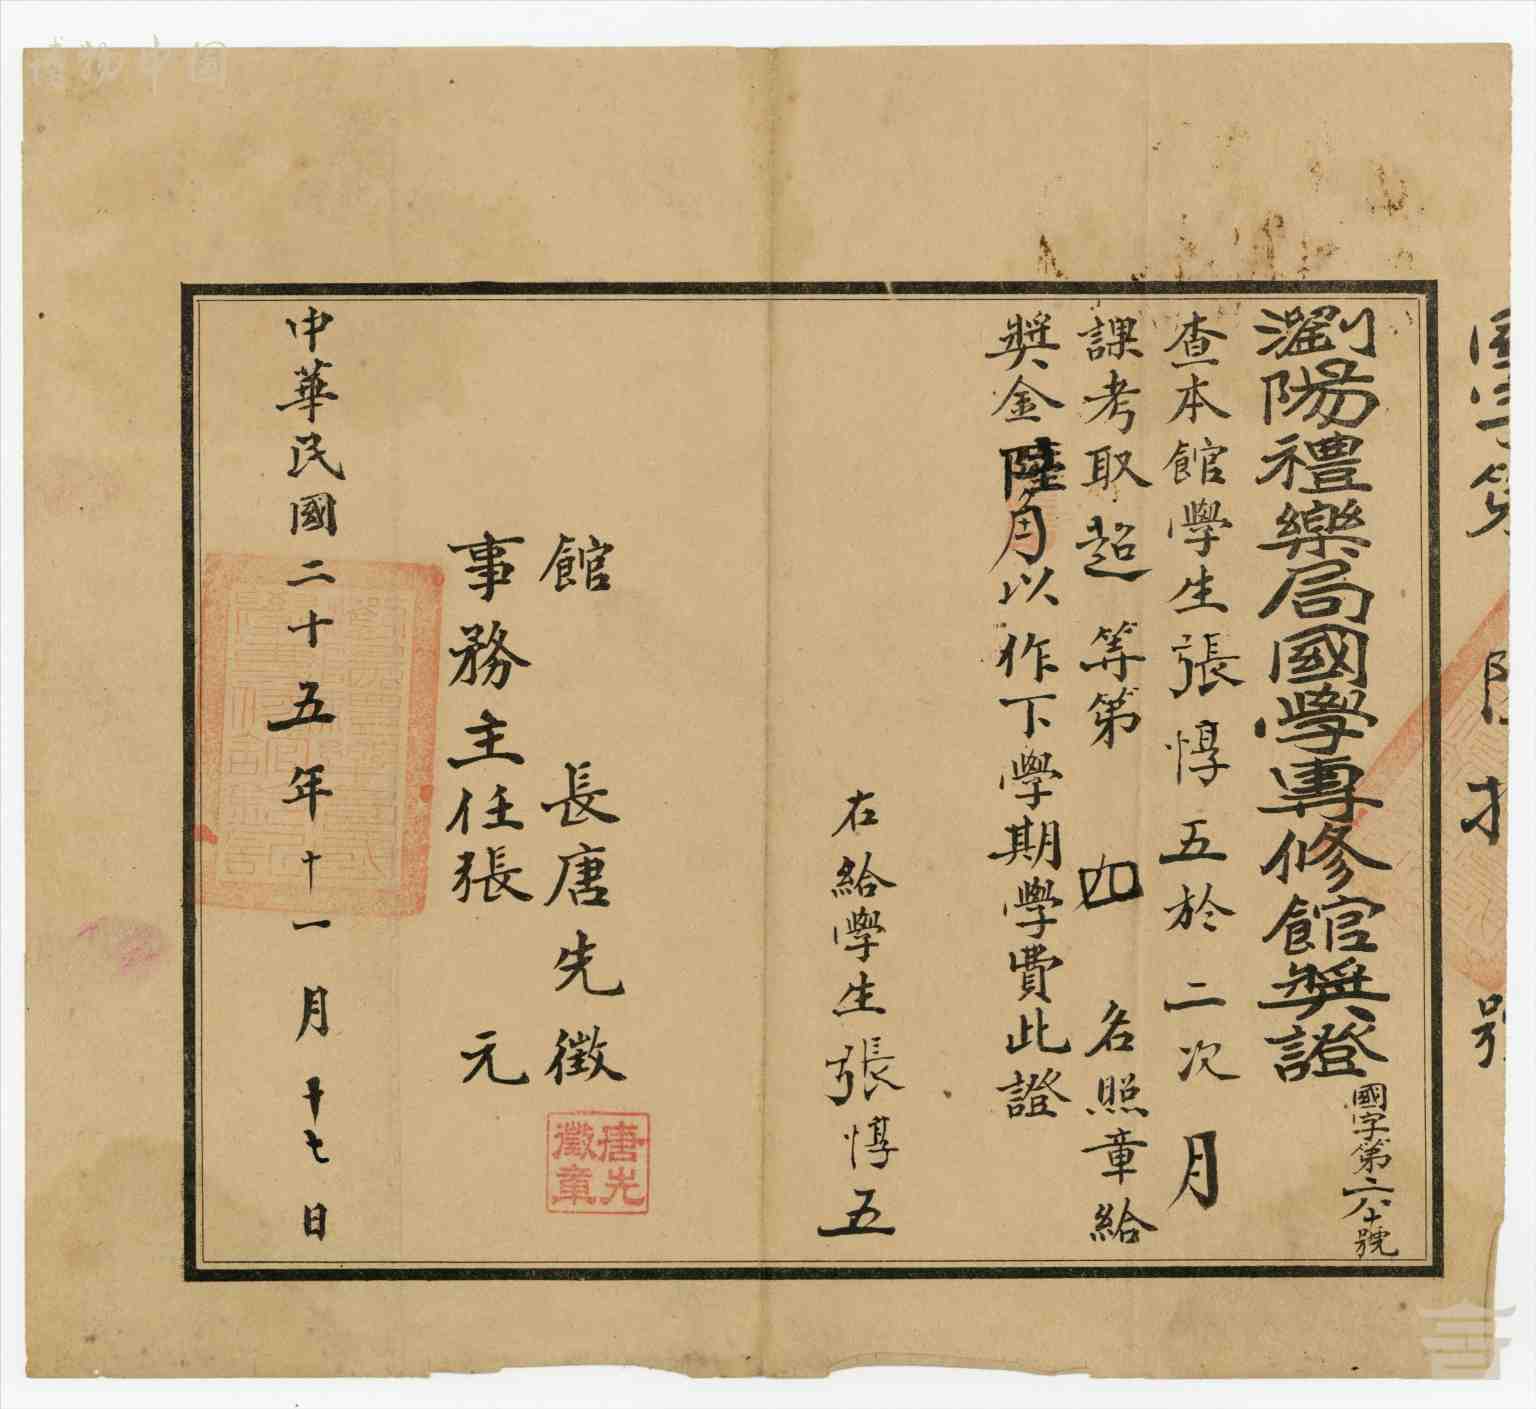 國字第 陸拾 號
瀏陽禮樂局國學專修館獎證
國字第六十號
查本館學生張惇五於二次月
課考取超等第四名照章給
獎金陸角以作下學期學費此證
右給學生張惇五
館 長唐先徵
事務主任張 元
中華民國二十五年十一月十七日
唐先
徵章
博物中国